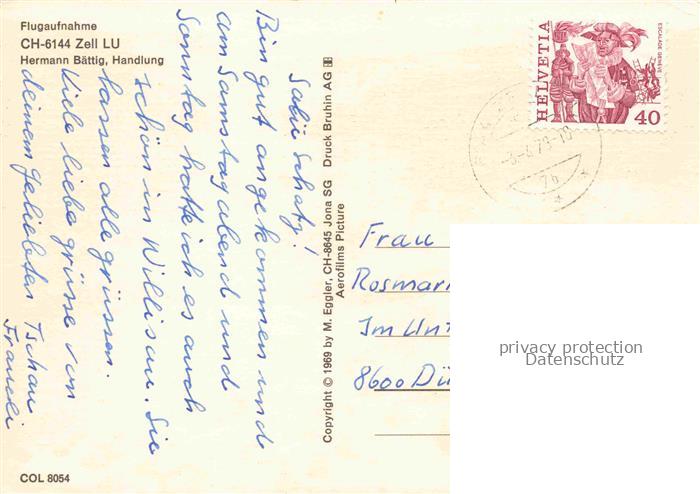 Flugaufnahme
CH-6144 Zell LU
Hermann Bättig, Handlung
Salü Schatz!
Bin gut angekommen und
am Samstag abend und
Sonntag hatte ich es auch
schön in Willisau. Sie
lassen alle grüssen.
Viele liebe grüsse von
deinem geliebten Tschau
Francki
Copyright © 1969 by M. Eggler, CH-8645 Jona SG Druck Bruhin AG
Aerofilms Picture
HELVETIA
ESCALADE GENÈVE
40
Frau
Rosmar
Im Unt
8600 Dü
privacy protection
Datenschutz
COL 8054